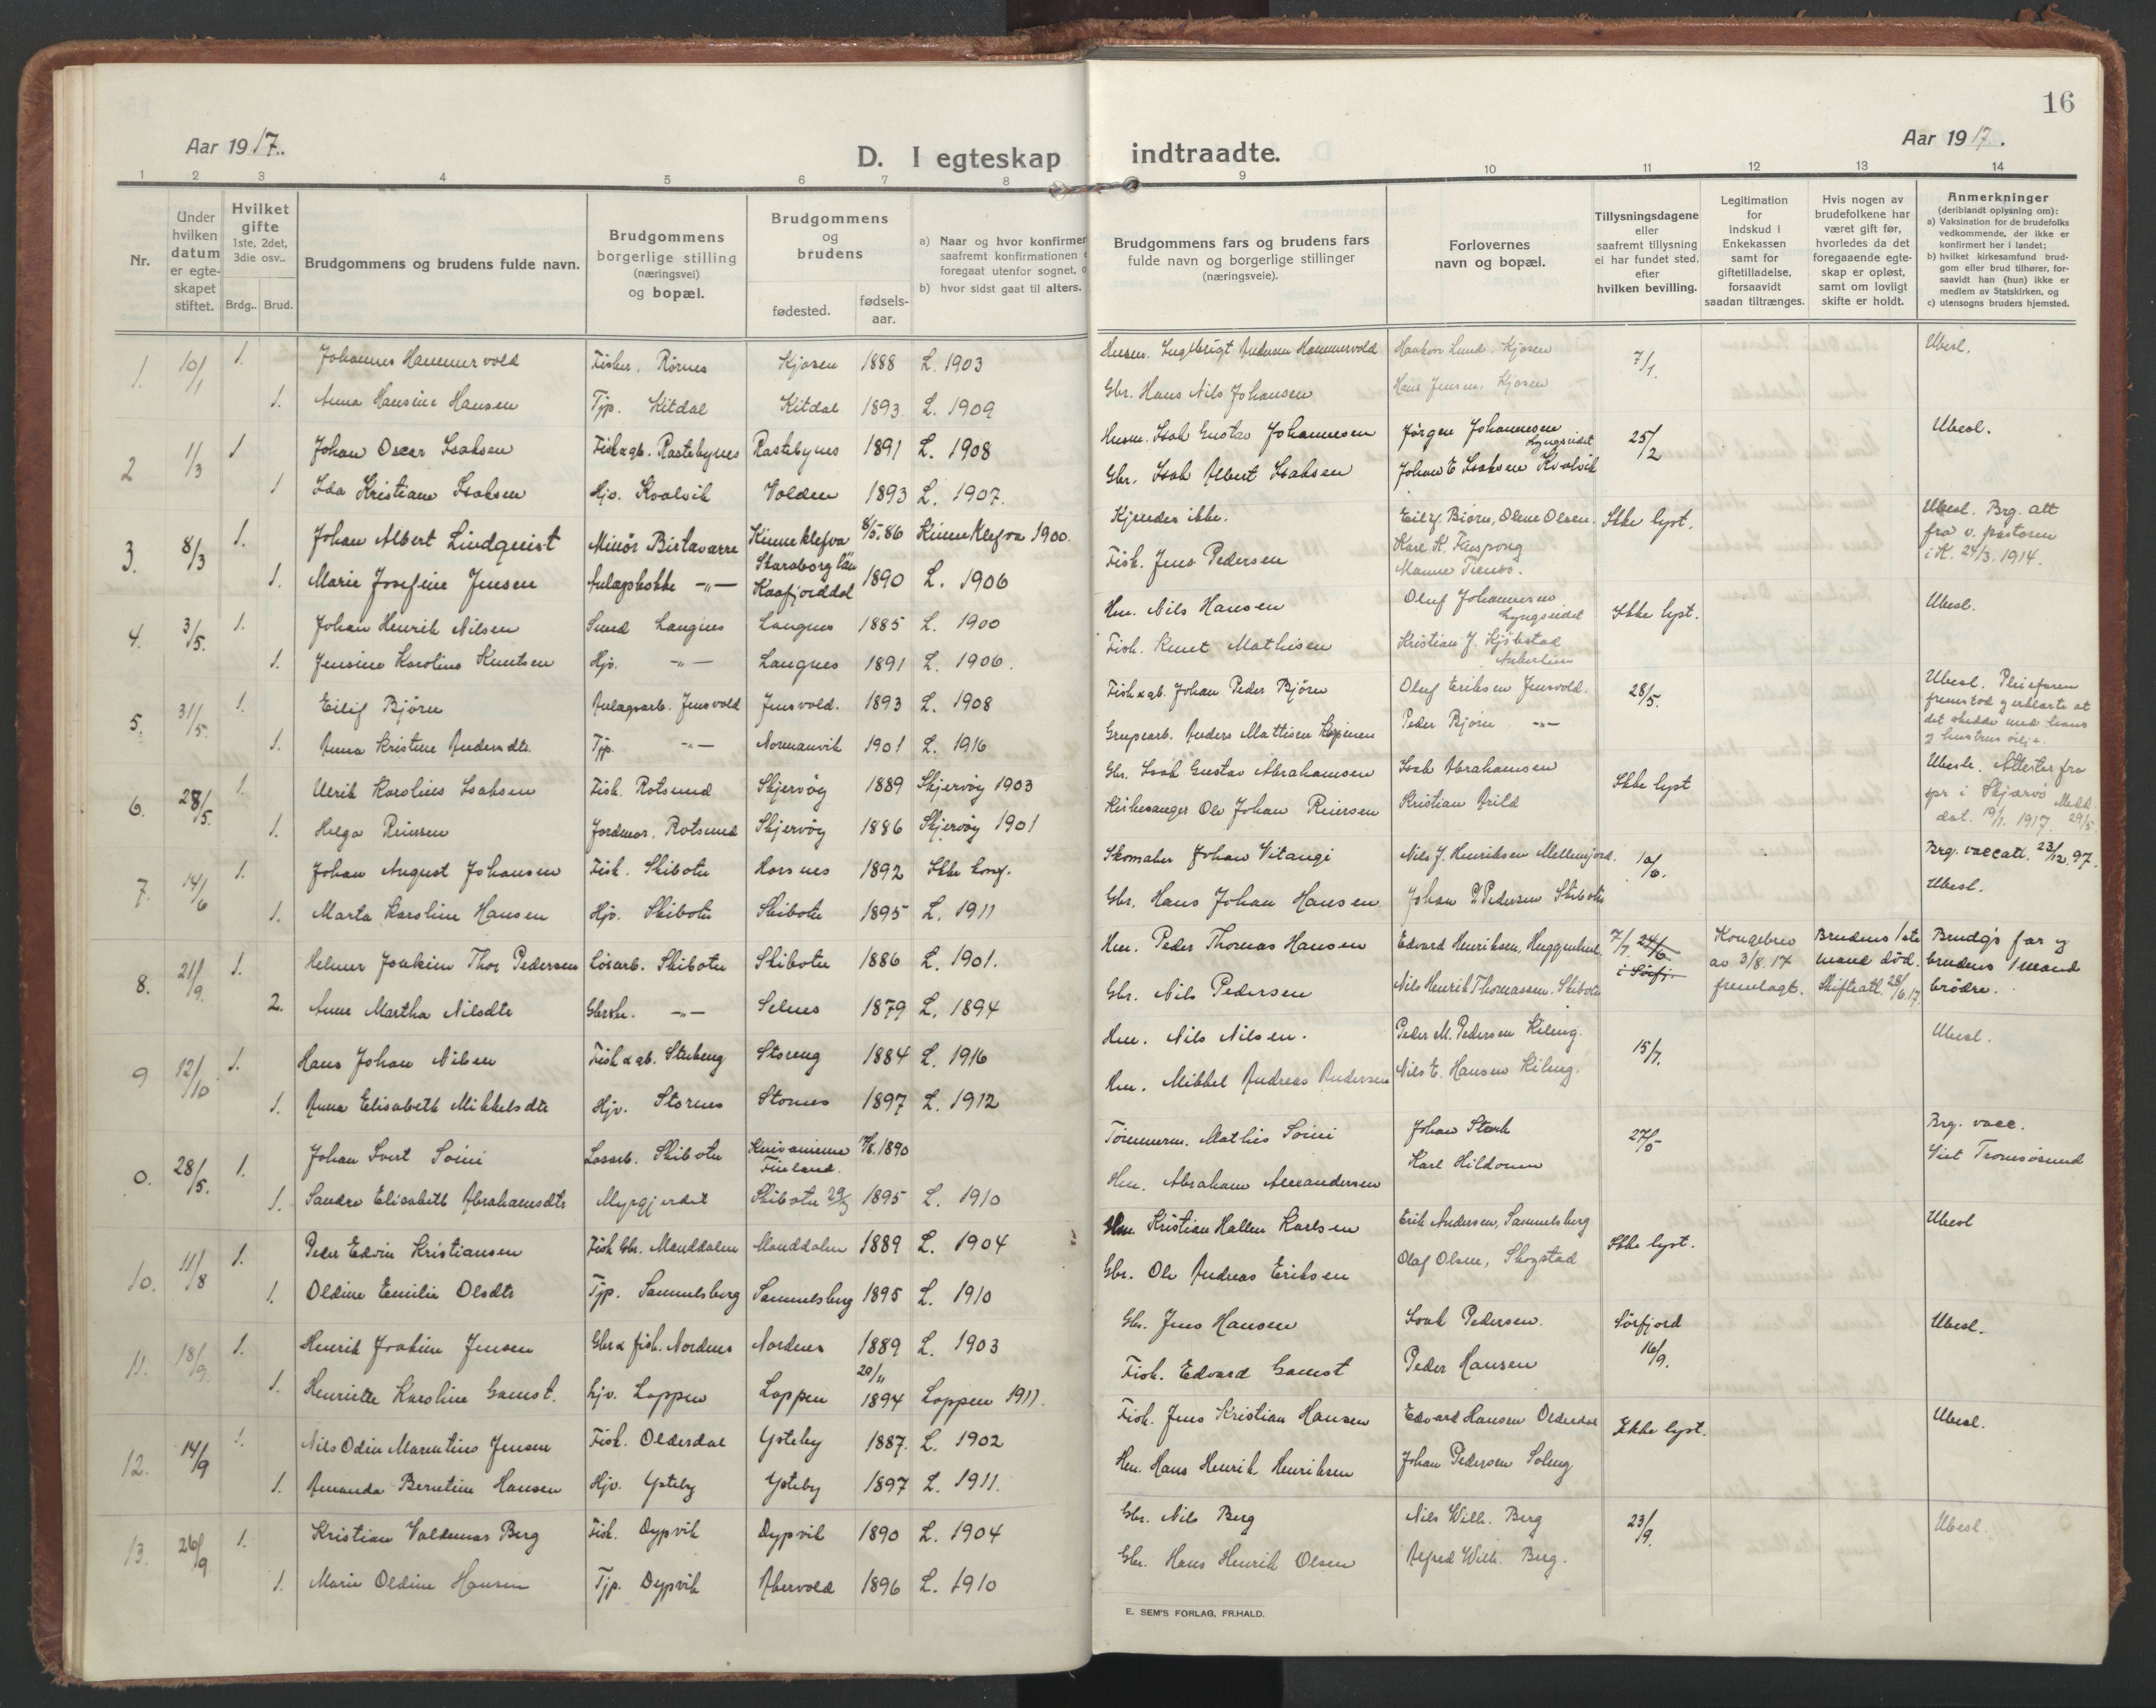 16
Aar 1917.
Aar 1917.
D. I egteskap indtraadte.
1 2 3 4 5 6 7 8 9 10 11 12 13 14
Nr.
Under hvilken datum er egte-skapet stiftet.
Hvilket gifte
1ste, 2det, 3die osv..
Brdg.. Brud.
Brudgommens og brudens fulde navn.
Brudgommens borgerlige stilling
(næringsvei)
og bopæl.
Brudgommens og brudens
fødested. fødsels-aar.
a) Naar og hvor konfirmer
saafremt konfirmationen
foregaat utenfor sognet, o
b) hvor sidst gaat til alters.
Brudgommens fars og brudens fars
fulde navn og borgerlige stillinger
(næringsveie).
Forlovernes
navn og bopæl.
Tillysningsdagene
eller
saafremt tillysning
ei har fundet sted,
efter
hvilken bevilling.
Legitimation
for
indskud i
Enkekassen
samt for
giftetilladelse,
forsaavidt
saadan tiltrænges.
Hvis nogen av
brudefolkene har
været gift før,
hvorledes da det
foregaaende egte-
skap er opløst,
samt om lovligt
skifte er holdt.
Anmerkninger
(deriblandt oplysning om):
a) Vaksination for de brudefolks
vedkommende, der ikke er
konfirmert her i landet;
b) hvilket kirkesamfund brud-
gom eller brud tilhører, for-
saavidt han (hun) ikke er
medlem av Statskirken, og
c) utensogns bruders hjemsted.
1. 10/1 1. Johannes Hammervold Fisker. Rørnes Kjosen 1888 L. 1903 Andersen Hammervold Haakon Lund, Kjosen 7/1. Ubesl.
1. Anna Hansine Hansen Tjp. Kitdal Kitdal 1893 L. 1909 Gbr. Hans Nils Johansen Hans Jensen, Kjosen
2 11/3 1 Johan Oscar Isaksen Fisk & gb. Rastebynes Rastebynes 1891 L. 1908 Husm. Isak Gustav Johannesen Jørgen Johannesen Lyngseidet 25/2 Ubesl.
1 Ida Kristiane Isaksen Hjv. Kvalvik Volden 1893 L. 1907. Gbr. Isak Albert Isaksen Johan E Isaksen Kvalvik
3. 8/3 1. Johan Albert Lindqvist Minör Bistavarre Kinneklefva Skaraborg län 8/5.86 Kinneklefva 1900. Kjendes ikke. Eilif Biörn, Olene Olsen. Ikke lyst. Ubesl. Brg. att fra v. pastoren i K. 24/3. 1914.
1. Marie Josefine Jensen Anlagskokke -"- Kaafjorddal 1890 L. 1906 Fisk. Jens Pedersen Karl K.
4. 3/5. 1. Johan Henrik Nilsen Sund Langnes Langnes 1885 L. 1900 Hm. Nils Hansen Oluf Johannesen Lyngseidet Ikke lyst. Ubesl.
1. Jensine Karoline Knutsen Hjv. -"- Langnes 1891 L. 1906. Fisk. Knut Mathisen Kristian J.
5. 31/5. 1. Eilif Bjørn Anlagsarb. Jensvold Jensvold. 1893 L. 1908 Fisk & gb. Johan Peder Bjørn Oluf Eriksen Jensvold. 28/5. Ubesl. Pleiefaren fremstod og erklærte at det skedde med hans og hustrus vilje.
1. Anna Kristine Andersdtr. Tjp. -"- Normanvik 1901 L. 1916 Grupearb. Anders Mattisen Peder Bjørn -"-
6. 28/5. 1. Ulrik Karolius Isaksen Fisk. Rotsund Skjervøy 1889 Skjervøy 1903 Gbr. Isak Gustav Abrahamsen Isak Abrahamsen Ikke lyst Ubesl. Attester fra spr i Skjærvö dat. 19/1. 1917. Meld. 29/5
1. Helga Reiersen Jordmor. Rotsund Skjervøy 1886 Skjervøy 1901 Kirkesanger Ole Johan Reiersen Kristian Arild
7. 14/6 1. Johan August Johansen Fisk. Skibotn Horsnes 1892 Ikke konf. Skomaker Johan Vitangi Nils J. Henriksen Mellemjord. 10/6. Brg. vaccat. 23/12.97.
1. Marta Karoline Hansen Hjv. Skibotn Skibotn 1895 L. 1911 Gbr. Hans Johan Hansen Johan P. Pedersen Skibotn Ubesl.
8. 21/9. 1. Helmer Joakim Thor Pedersen Løsarb. Skibotn Skibotn 1886 L. 1901. Hm. Peder Thomas Hansen Edvard Henriksen, 7/7. 24/6. i Sörfj. Kongebrev av 3/8.17 fremlagt. Brudens 1ste mand död. Skifteatt. 28/6.17. Brudg's far og brudens 1 mand brødre.
2. Anne Martha Nilsdtr Gbrsk. -"- Selnes 1879 L. 1894 Gbr. Nils Pedersen Nils Henrik Thomassen. Skibotn
9 12/10 1. Hans Johan Nilsen Fisk & gb. Storeng 1884 L. 1916 Hm. Nils Nilsen. Peder M. Pedersen Kileng. 15/7. Ubesl.
1. Anna Elisabeth Mikkelsdtr Hjv. Stornes Stornes 1897 L. 1912 Hm. Mikkel Andreas Andersen Nils E. Hansen Kileng.
0. 28/5. 1. Johan Soini Løsarb. Skibotn Finland. 1890 Tømmerm. Mathis Soini Johan Stark 27/5 Brg. vacc.
1. Sandra Elisabeth Abrahamsdtr Myrgjerdet Skibotn 1895 L. 1910 Hm. Abraham Alexandersen Karl Hildonen Viet Tromsösund
10. 11/8 1. Peder Edvin Kristiansen Fisk Gbr. Manddalen Manddalen 1889 L. 1904 Hm. Kristian Hallen Karlsen Erik Andersen, Samuelsberg Ikke lyst. Ubesl
1. Oldine Emilie Olsdtr Tjp. Samuelsberg Samuelsberg 1895 L. 1910 Gbr. Ole Andreas Eriksen Olaf Olsen, Skogstad
11. 18/9. 1. Henrik Joakim Jensen Gbr & fisk. Nordnes Nordnes 1889 L. 1903 Gbr. Jens Hansen Isak Pedersen. Sörfjord 16/9. Ubesl.
1. Henriette Karoline Gamst. Hjv. Loppen Loppen 20/11 1894 Loppen 1911. Fisk. Edvard Gamst Peder Hansen
12. 14/9 1. Nils Odin Marentius Jensen Fisk. Olderdal Ysteby 1887. L. 1902 Fisk. Jens Kristian Hansen Edvard Hansen Olderdal Ikke lyst. Ubesl.
1. Amanda Berntine Hansen Hjv. Ysteby Ysteby 1897 L. 1911. Hm. Hans Henrik Henriksen Johan Pedersen Soleng
13. 26/9 1. Kristian Valdemar Berg Fisk. Dypvik Dypvik 1890 L. 1904 Gbr. Nils Berg Nils Wilh. Berg 23/9. Ubesl.
1. Marie Oldine Hansen Tjp. Dypvik Akervold 1896 L. 1910 Gbr. Hans Henrik Olsen Alfred Wilh. Berg.
E. SEM'S FORLAG, FR.HALD.